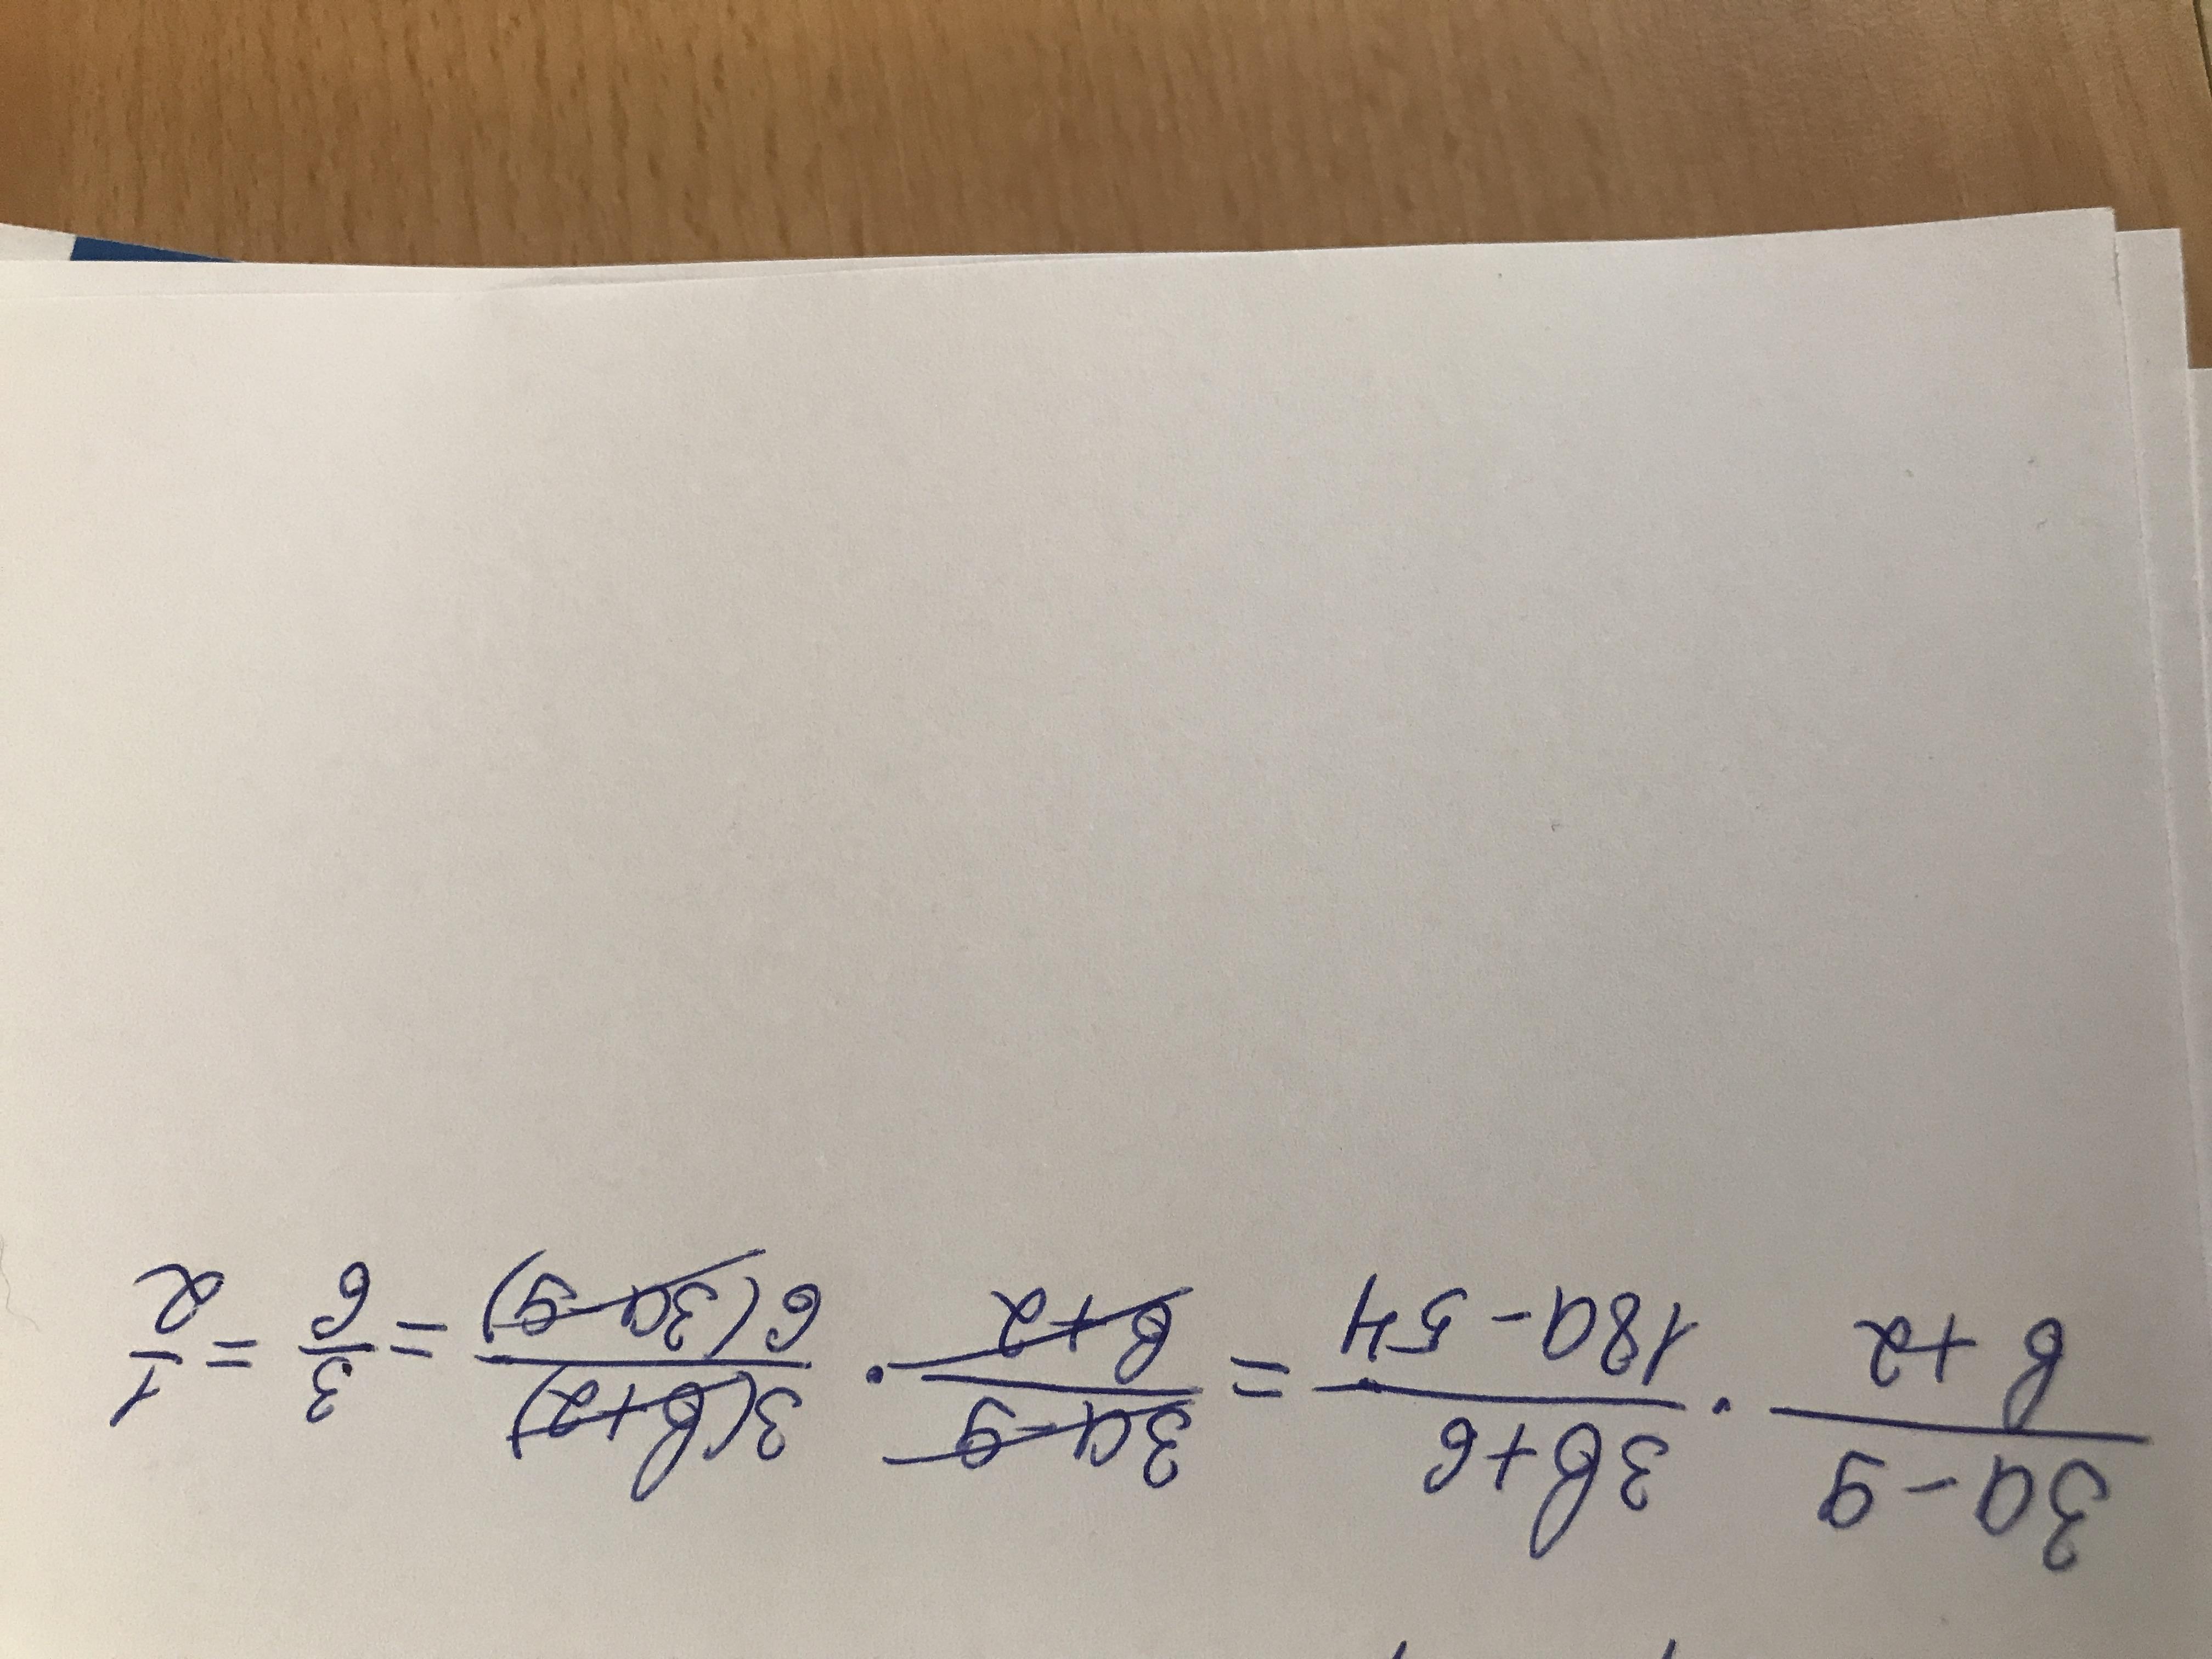 (3a-9)/(b+2) · (3b+6)/(18a-54) = (3a-9)/(b+2) · 3(b+2)/6(3a-9) = 3/6 = 1/2